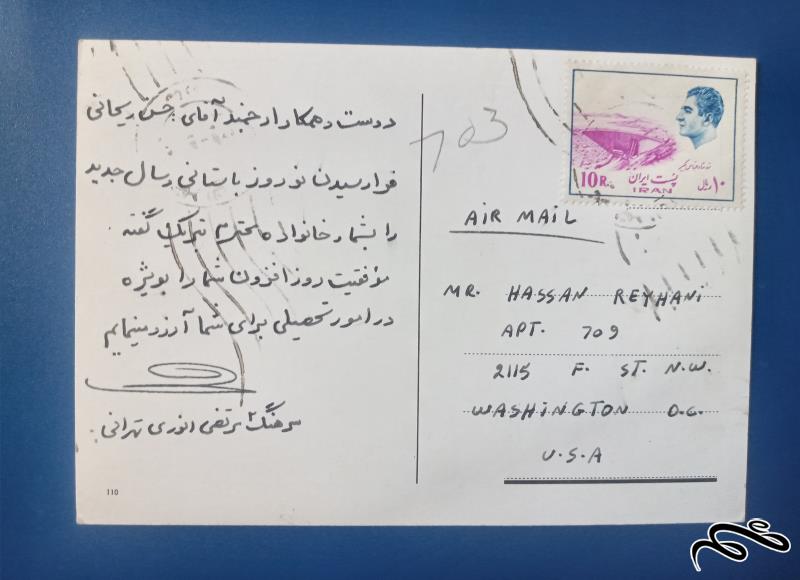 دوست و همکار ارجمند آقای حسن ریحانی
فرا رسیدن نوروز باستانی و سال جدید
را بشما و خانواده محترم تبریک گفته
موفقیت روزافزون شما را بویژه
در امور تحصیلی برای شما آرزو مینمایم
سرهنگ مرتضی انوری تهرانی
110
703
10R.
پست ایران
IRAN
۱۰ ریال
AIR MAIL
MR. HASSAN REYHANI
APT. 709
2115 F. ST. N.W.
WASHINGTON D.C.
U.S.A